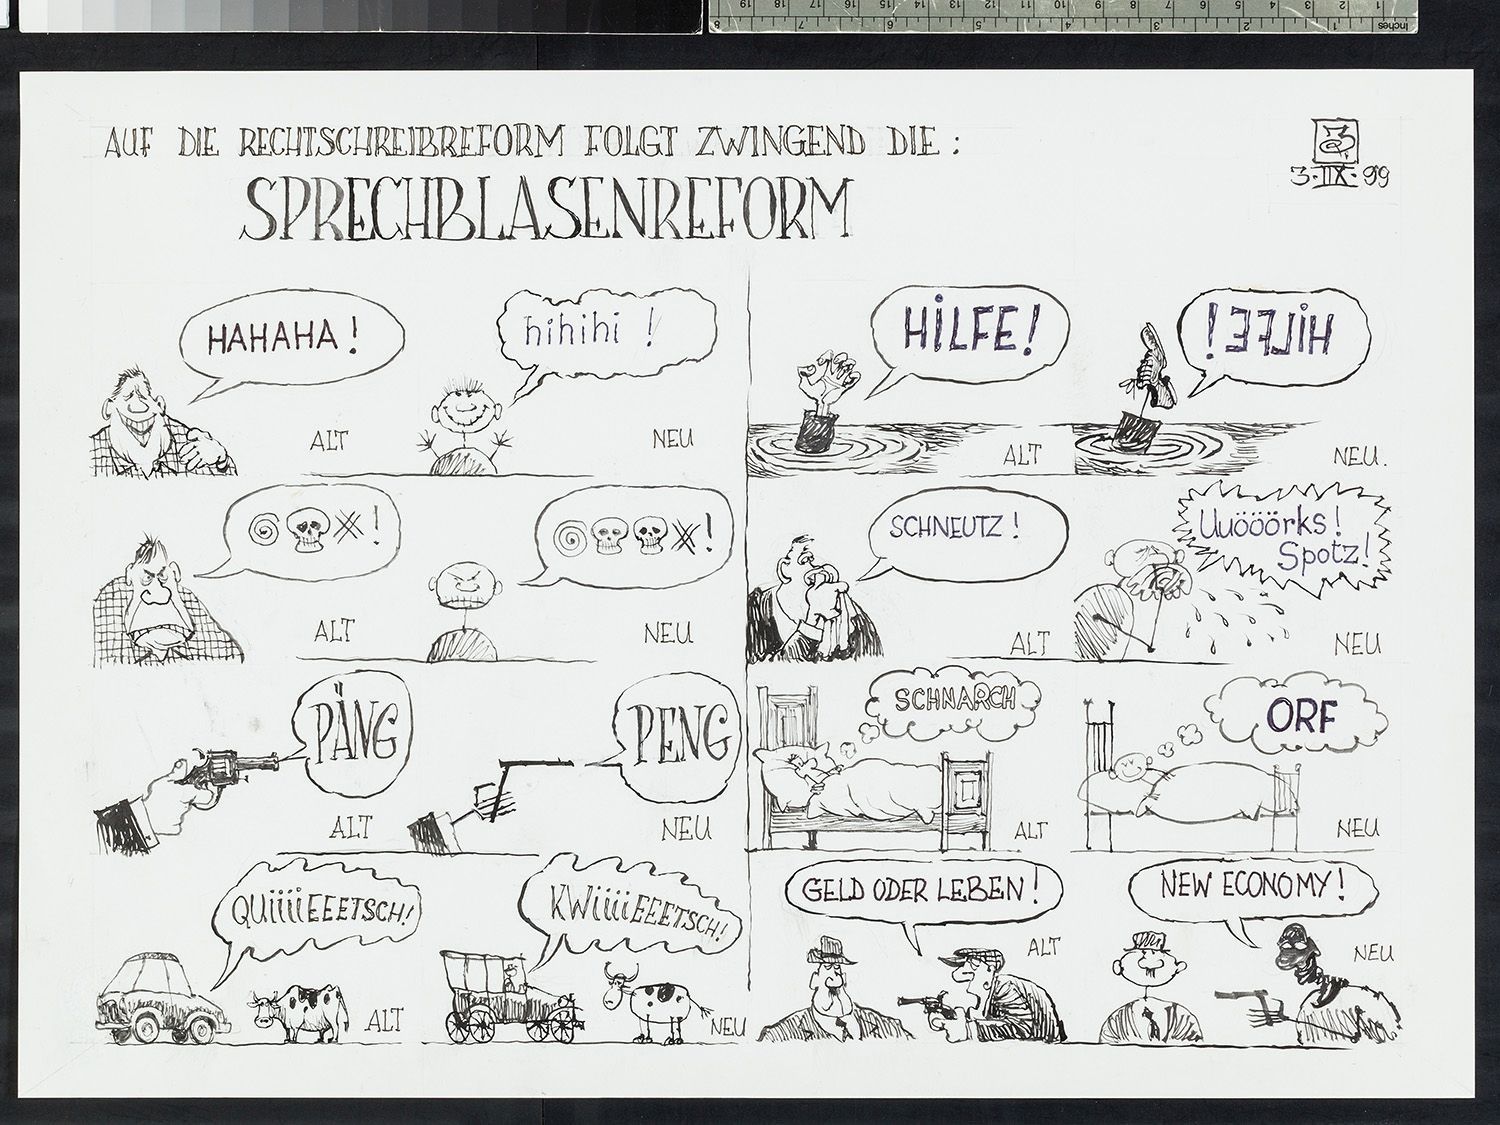 AUF DIE RECHTSCHREIBREFORM FOLGT ZWINGEND DIE :
SPRECHBLASENREFORM
3·IIX·99
HAHAHA!
ALT
hihihi !
NEU
HiLFE!
ALT
HiLFE!
NEU.
!
ALT
!
NEU
SCHNEUTZ!
ALT
Uuöööörks!
Spotz!
NEU
PÄNG
ALT
PENG
NEU
SCHNARCH
ALT
ORF
NEU
QUiiiiEEETSCH!
ALT
KWiiiiEEETSCH!
NEU
GELD ODER LEBEN!
ALT
NEW ECONOMY!
NEU
Inches
1 2 3 4 5 6 7 8 9 10 11 12 13 14 15 16 17 18 19
1 2 3 4 5 6 7 8